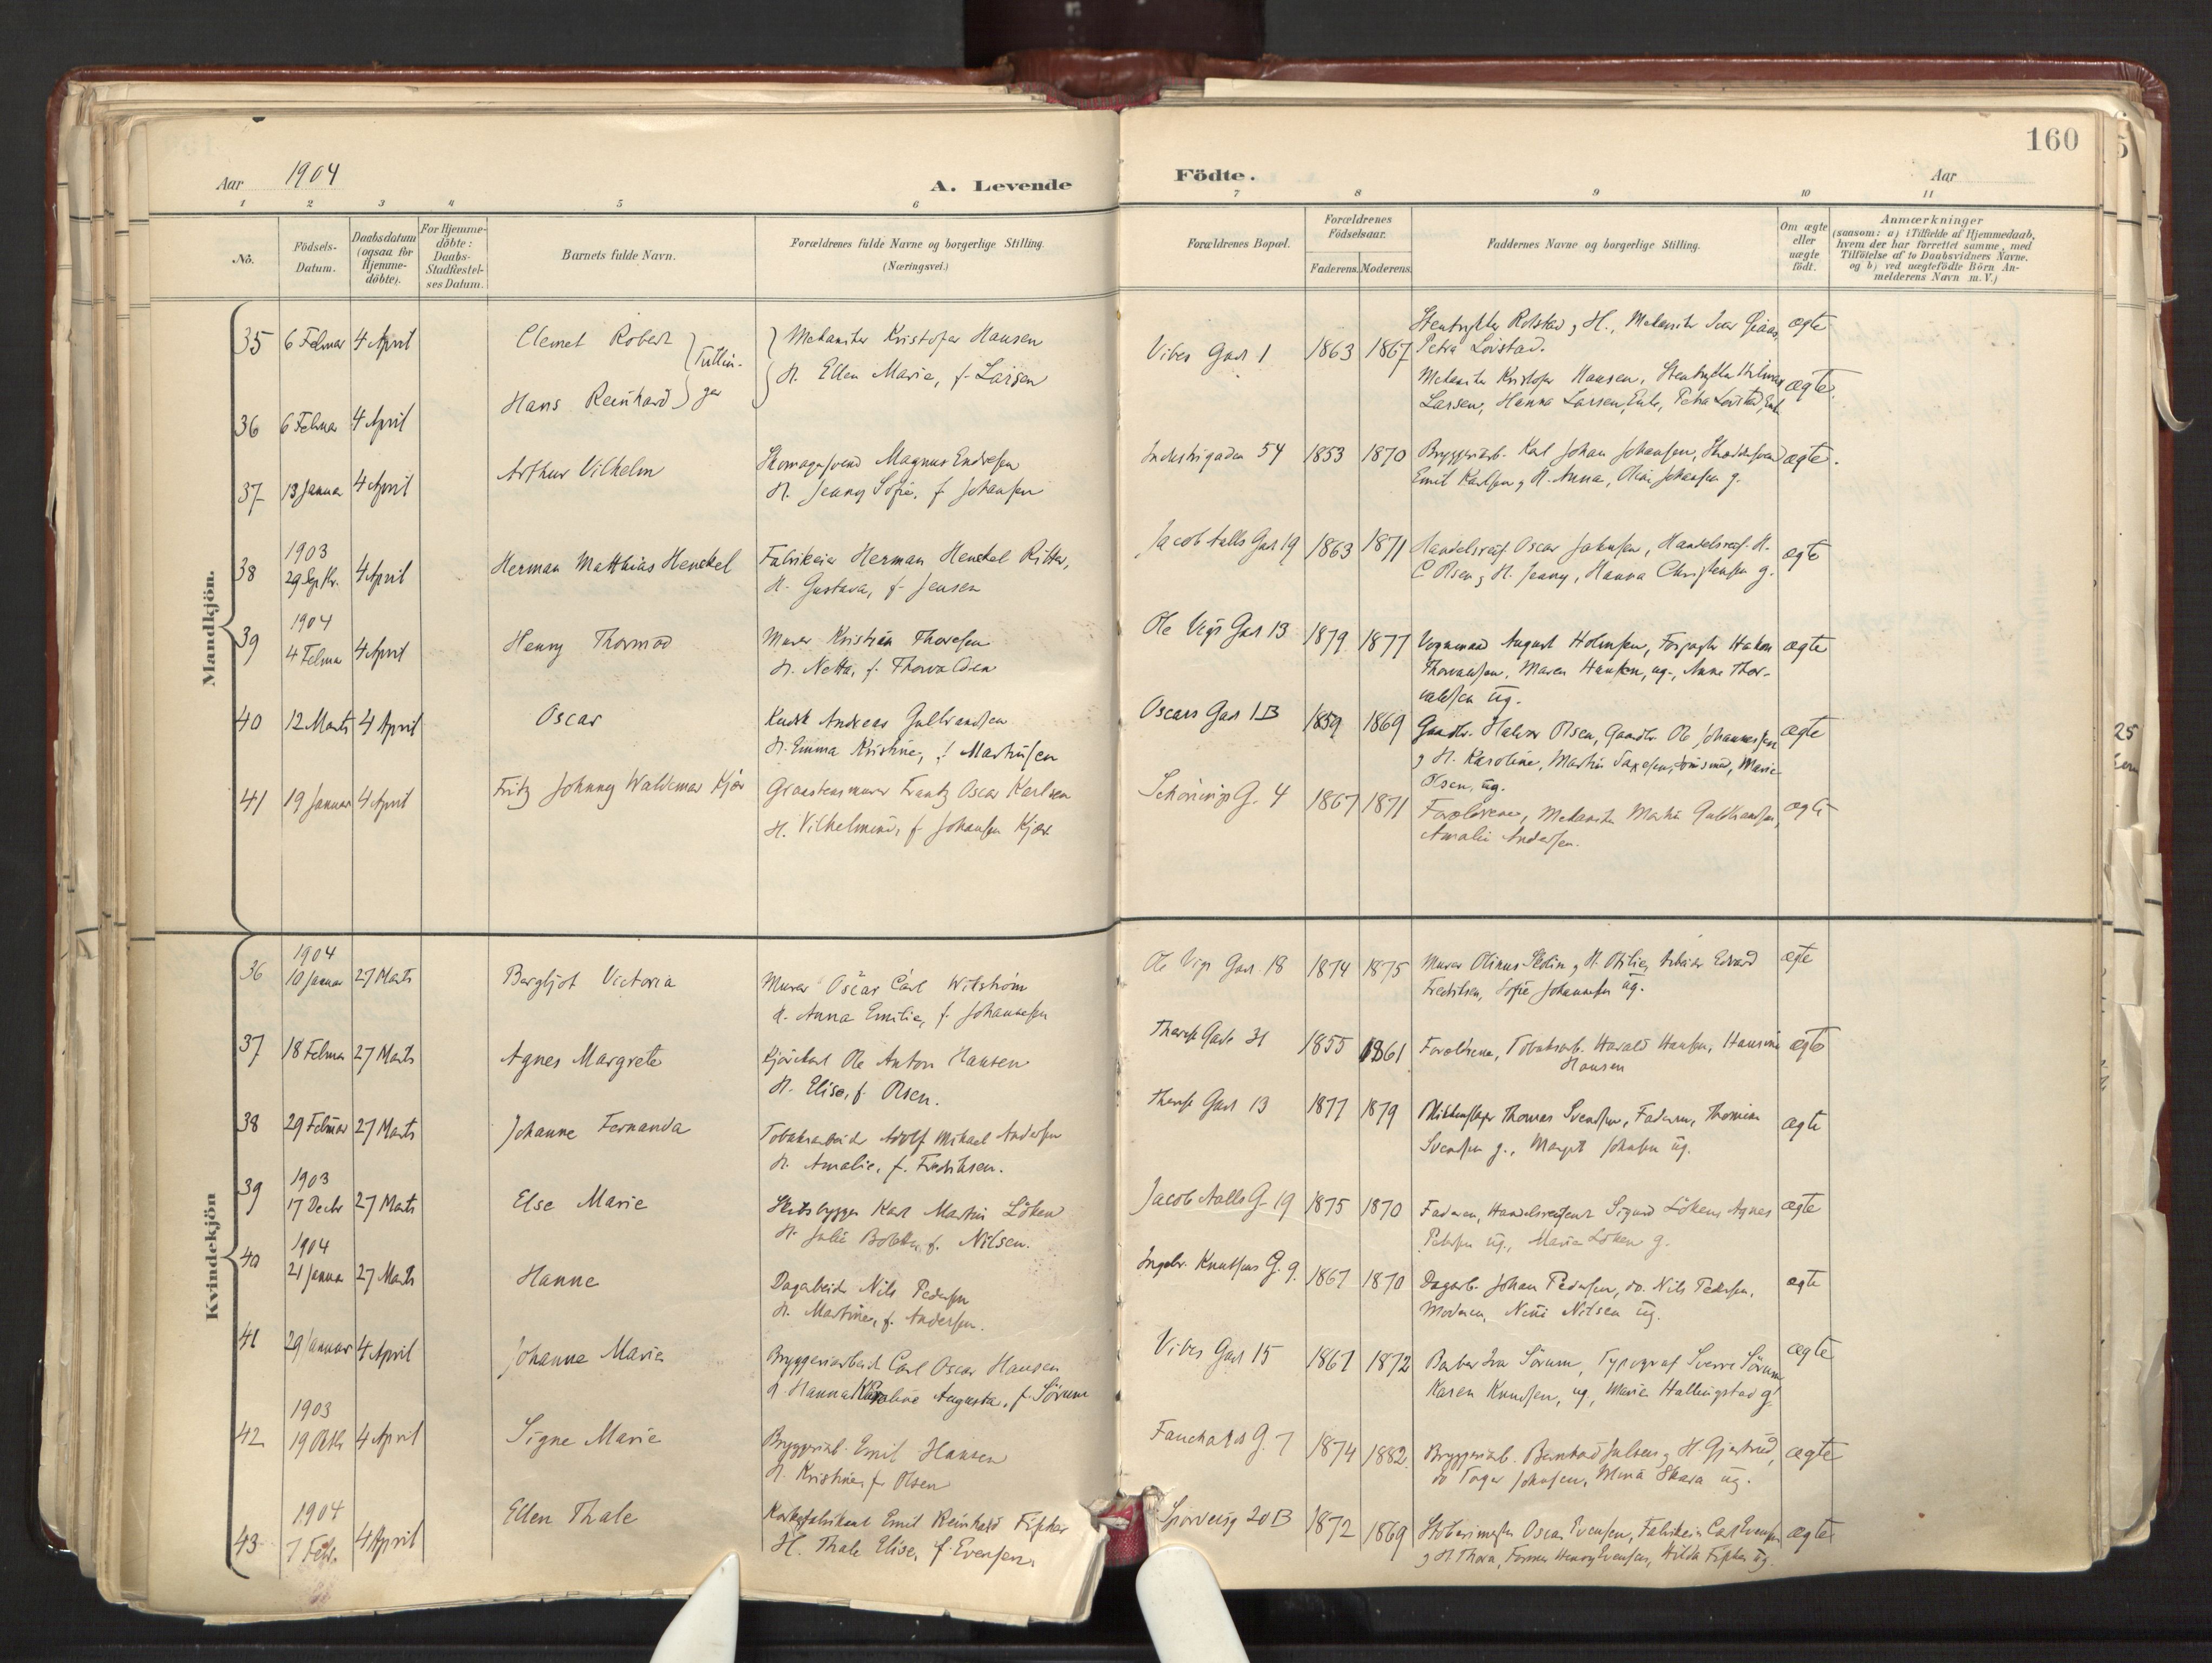 160
Aar 1904
A. Levende
Födte.
Aar
1 2 3 4 5 6 7 8 9 10 11
No.
Födsels-
Datum.
Daabsdatum
(ogsaa for
Hjemme-
döbte).
For Hjemme-
döbte:
Daabs-
Stadfæstel-
ses Datum.
Barnets fulde Navn.
Forældrenes fulde Navne og borgerlige Stilling.
(Næringsvei.)
Forældrenes Bopæl.
Forældrenes
Födselsaar.
Faderens. Moderens.
Faddernes Navne og borgerlige Stilling.
Om ægte
eller
uægte
födt.
Anmærkninger
(saasom: a) i Tilfælde af Hjemmedaab,
hvem der har forrettet samme, med
Tilföielse af to Daabsvidners Navne.
og b) ved uægtefödte Börn An-
melderens Navn m.V.)
Mandkjön.
35 6 Februar 4 April Clemet Robert Mekaniker Kristofer Hansen Vibes Gad 1 1863 1867 H., Mekaniker ægte
Tvillin-
ger
H. Ellen Marie, f. Larsen
Petra Lövstad.
36 6 Februar 4 April Hans Reinhard Mekaniker Kristofer Hansen, ægte
Larsen, Hanna Larsen, Enke, Petra Lövstad,
37 13 Januar 4 April Arthur Vilhelm Skomagersvend Magnus Endresen Industrigaden 54 1853 1870 Bryggeriarb. Karl Johan Johansen, ægte
H. Jenny Sofie, f. Johansen
Emil Karlsen, H. Anna, Johansen g.
38 1903
29 Septbr. 4 April Herman Matthias Henckel Fabrikeier Herman Henckel Ritter, Jacob Aalls Gad 19 1863 1871 Handelsreis. Oscar Jakobsen, Handelsreis. H. ægte
H. Gustava, f. Jensen
C. Olsen, H. Jenny, Hanna Christensen g.
39 1904
4 Februar 4 April Henry Thormod Murer Kristian Thoresen Ole Vigs Gad 13 1879 1877 Vognmand August Holmsen, Hakon ægte
H. Netta, f. Thorvaldsen
Thorvaldsen, Maren Hansen, ug., Anna Thor-
valdsen ug.
40 12 Marts 4 April Oscar Kudsk Andreas Gulbrandsen Oscars Gad 1B 1859 1869 Gaardbr. Halvor Olsen, Gaardbr. Ole Johannessen ægte
H. Emma Kristine, f. Martinsen
H. Karoline, Martin Marie
Olsen, ug.
41 19 Januar 4 April Fritz Johnny Waldemar Kjær Graastensmurer Frantz Oscar Karlsen Schönings G. 4 1867 1871 Forældrene, Mekaniker Martin Guldbrandsen, ægte
H. Vilhelmine, f. Johansen Kjær
Amalie Andersen.
Kvindekjön
36 1904
10 Januar 27 Marts Bergljot Victoria Murer Oscar Carl Witström Ole Vigs Gad 18 1874 1875 Murer Olinus H. Otilie, Arbeider Edvard ægte
H. Anna Emilie, f. Johannesen
Fredriksen, Sofie Johannesen ug.
37 18 Februar 27 Marts Agnes Margrete Kjörekarl Ole Anton Hansen Therese Gade 31 1855 1861 Forældrene, Tobaksarb. Harald Hansen, Hansine ægte
Hansen
H. Elise, f. Olsen.
38 29 Februar 27 Marts Johanne Fernanda Tobaksarbeider Adolf Mikael Andersen Therese Gad 13 1877 1879 Thomas Svendsen, Faderen, Thomine ægte
H. Amalie, f. Fredriksen.
Svendsen g., Margit Johnsen ug.
39 1903
17 Decbr 27 Marts Else Marie Skibsbygger Karl Martin Löken Jacob Aalls G. 19 1875 1870 Faderen, Handelsreisende Sigurd Löken, Agnes ægte
H. Julie f. Nilsen.
Petersen ug., Marie Löken g.
40 1904
21 Januar 27 Marts Hanne Dagarbeider Nils Pedersen Ingebr. Knutsens G. 9. 1867 1870 Dagarb. Johan Pedersen, do. Nils Pedersen, ægte
H. Martine, f. Andersen.
Moderen, Nilsen ug.
41 29 Januar 4 April Johanne Marie Bryggeriarbeid Carl Oscar Hansen Vibes Gad 15 1867 1872 Barber Sörum, Typograf Sverre Sörum ægte
H. Hanna Karoline Augusta, f. Sörum
Karen Knudsen, ug, Marie Hallingstad g.
42 1903
19 Oktb 4 April Signe Marie Bryggeriarb. Emil Hansen Fauchalds G. 7 1874 1882. Bryggeriarb. Bernhard H. Gjertrud, ægte
H. Kristine, f. Olsen
do Johnsen, Skara ug.
43 1904
7 Febr. 4 April Ellen Thale Korkefabrikant Emil Reinhard Fischer Sporveisg 20B 1872 1869 Oscar Evensen, Fabrikeier Carl Evensen ægte
H. Thale Elise, f. Evensen.
H Thora, Henry Evensen, Hilda Fischer ug.
25